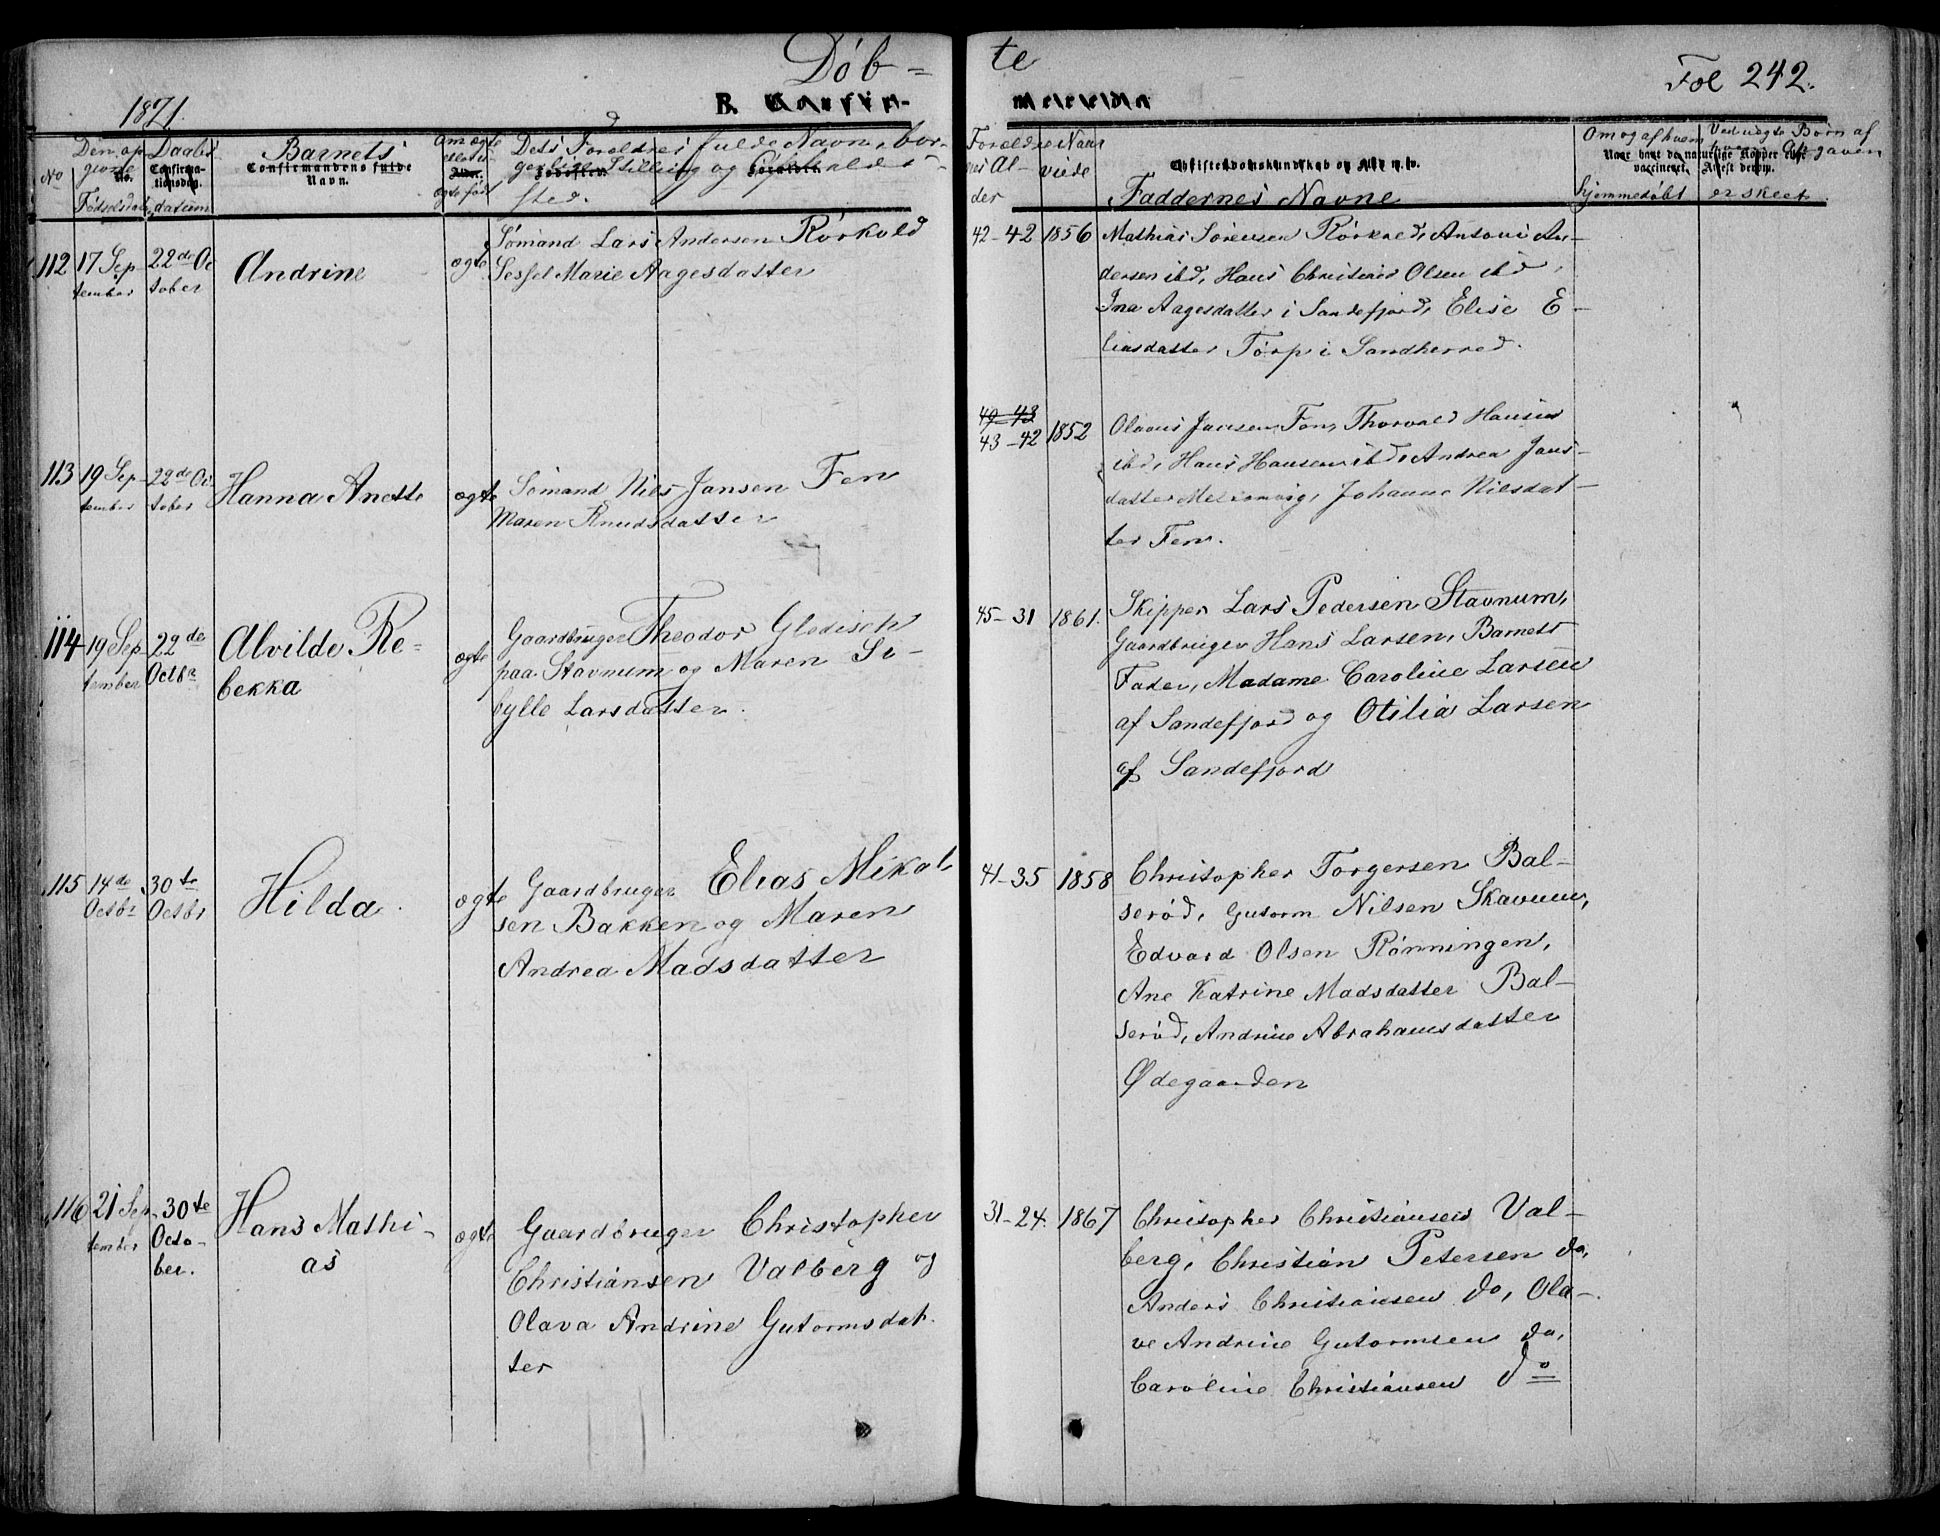 Døb-
te
Fol 242.
1871.
B. Confir-
Den op
givne
Fødselsdat
No
Daabs
Confirma-
tionsdag.
datum
Barnets
Confirmandens fulde
Navn.
Om ægte
eller u-
Alder.
ægte født
Dets Foreldres fulde Navn, bor-
gerlige Stilling og Opholds-
sted.
Foreldre
nes Al-
der
Naar
viede
Christendomskundskab og Flid m. v.
Faddernes Navne
Om og af hvem
hjemmedøbt
Ved uægte Børn af
Opgaven
er skeet
Naar havt de naturlige Kopper eller
vaccineret. Attest derom.
112 17 Sep-
tember
22de Oc
tober
Andrine
ægte
Sømand Lars Andersen Rørkold
Sessel Marie Aagesdatter
42-42 1856
Mathias Sørensen Rørkold, Antoni An-
dersen ibd, Hans Christian Olsen ibd,
Ina Aagesdatter i Sandefjord, Elise E-
liasdatter Torp i Sandherred.
113 19 Sep-
tember
22de Oc
tober
Hanna Anette
ægte
Sømand Nils Jansen Fen
Maren Knudsdatter
49-43
43-42 1852
Olavus Jansen Fen, Thorvald Hansen
ibd, Hans Hansen ibd, Andrea Jans-
datter Melsomvig, Johanne Nilsdat-
ter Fen.
114 19 Sep
tember
22de
Octbr
Alvilde Re-
bekka
ægte
Gaardbruger Theodor Gledisch
paa Stavnum og Maren Si-
bylle Larsdatter.
45-31 1861.
Skipper Lars Pedersen Stavnum,
Gaardbruger Hans Larsen, Barnets
Fader, Madame Caroline Larsen
af Sandefjord og Otilia Larsen
af Sandefjord
115 14de
Octbr
30te
Octbr
Hilda.
ægte
Gaardbruger Elias Mikal-
sen Bakken og Maren
Andrea Madsdatter
41-35 1858
Christopher Torgersen Bal-
serød, Gutorm Nilsen Skavum,
Edvard Olsen Rønningen,
Ane Katrine Madsdatter Bal-
serød, Andrine Abrahamsdatter
Ødegaarden
116 21 Sep-
tember
30te
Octo-
ber.
Hans Mathi-
as
ægte
Gaardbruger Christopher
Christiansen Valberg og
Olava Andrine Gutormsdat-
ter
31-24. 1867
Christopher Christiansen Val-
berg, Christian Petersen do,
Anders Christiansen do, Ola-
ve Andrine Gutormsen do,
Caroline Christiansen do